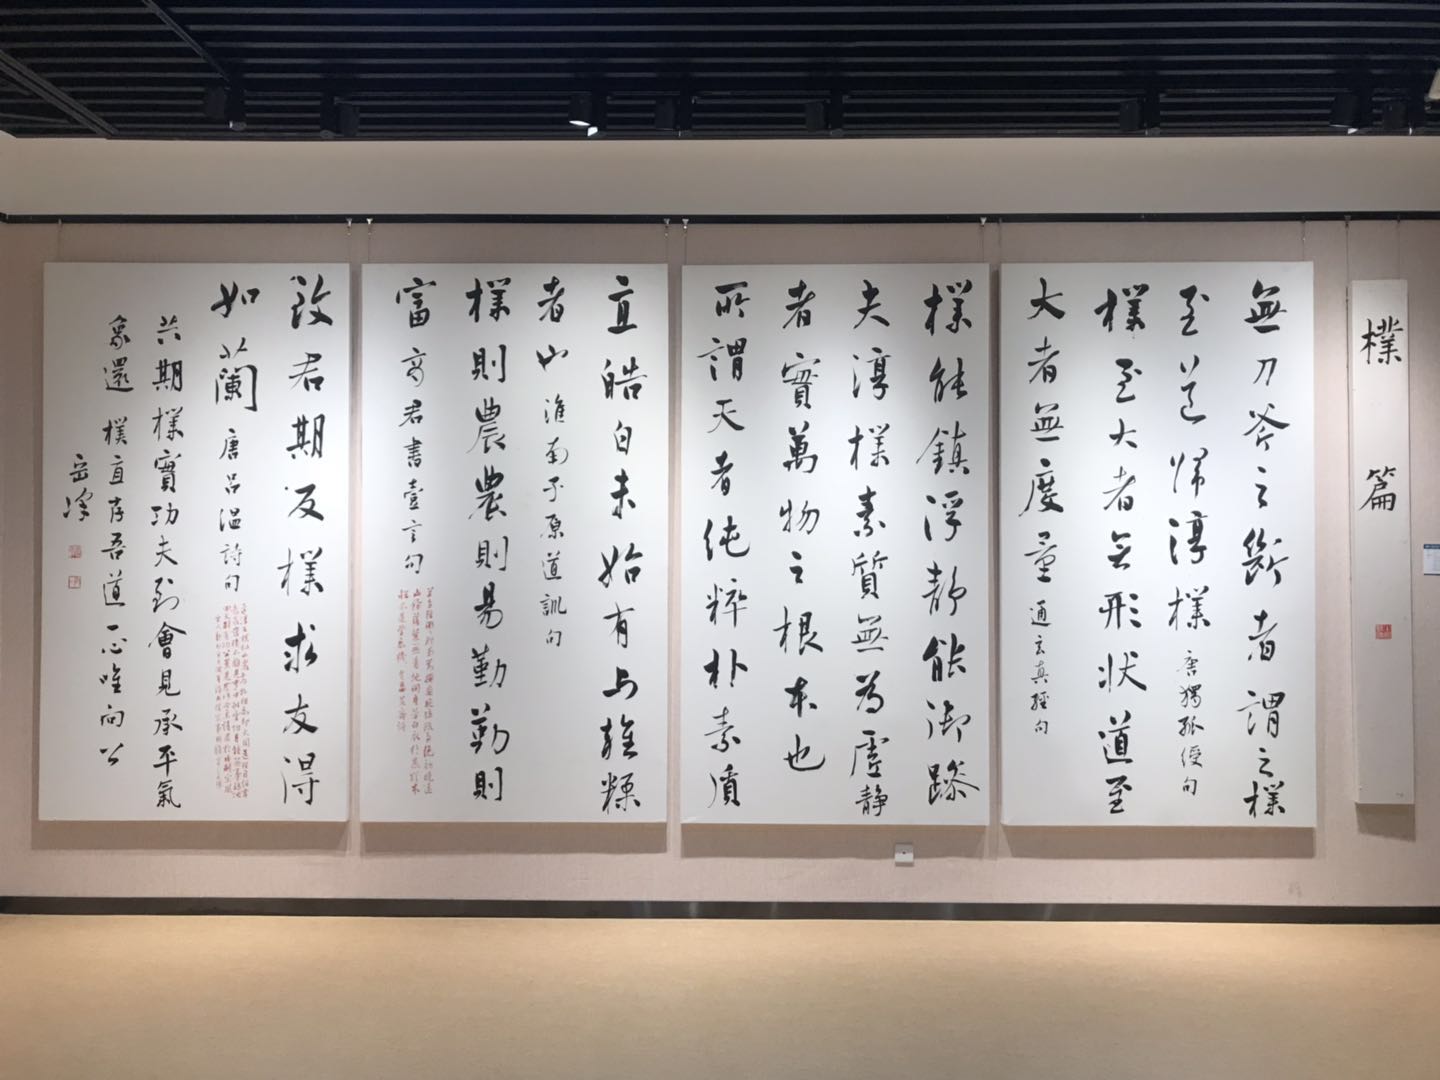 樸篇
無刀斧之斷者謂之樸
至道歸淳樸 唐獨孤綬句
樸至大者无形狀道至
大者無度量 通玄真經句
樸能鎮浮靜能御躁
夫淳樸素質無為虛静
者實萬物之根本也
所謂天者纯粹朴素质
直皓白未始有与雜糅
者也 淮南子原道訓句
樸則農農則易勤勤則
富 商君書壹言句
致君期反樸求友得
如蘭 唐呂温詩句
共期樸實功夫到會見承平氣
象還 樸直存吾道一心唯向公